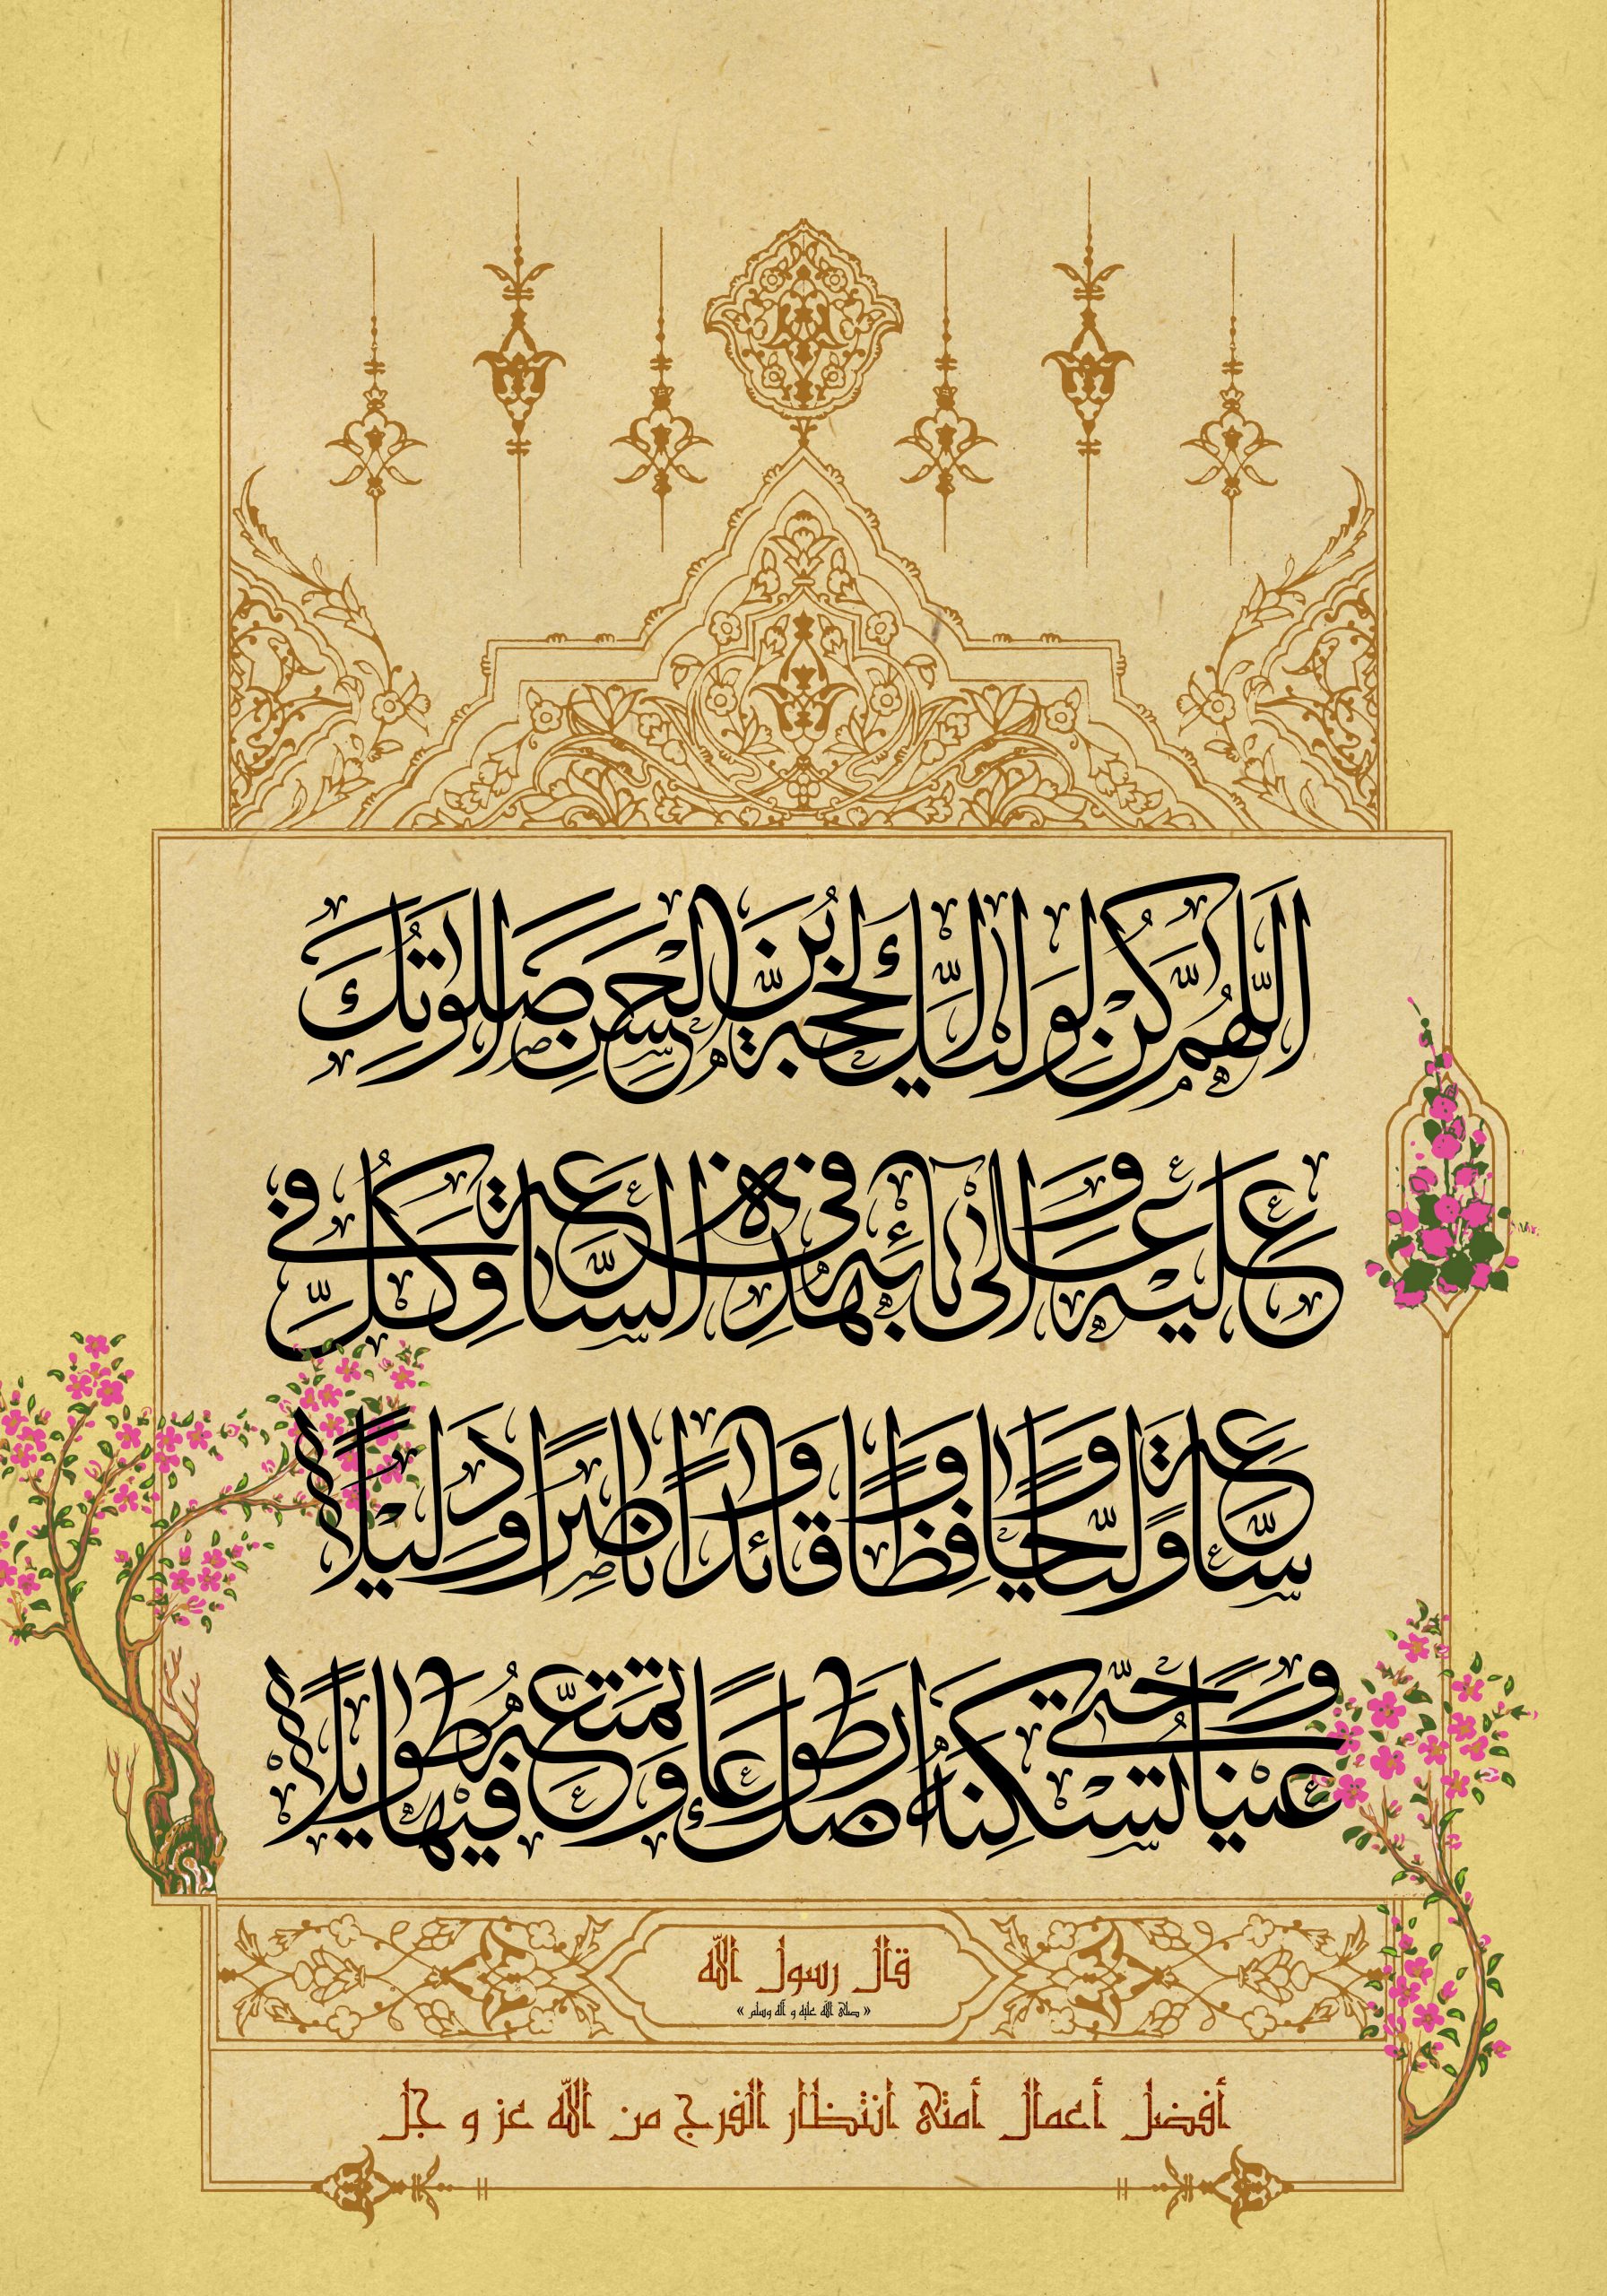 اَللّٰهُمَّ كُنْ لِوَلِيِّكَ الْحُجَّةِ بْنِ الْحَسَنِ صَلَواتُكَ
عَلَيْهِ وَعَلىٰ آبائِهِ في هٰذِهِ السَّاعَةِ وَفي كُلِّ
ساعَةٍ وَلِيّاً وَحافِظاً وَقائِداً وَناصِراً وَدَليلاً
وَعَيْناً حَتّىٰ تُسْكِنَهُ اَرْضَكَ طَوْعاً وَتُمَتِّعَهُ فيها طَويلاً
قال رسول الله
« صلى الله عليه و آله وسلم »
أفضل أعمال أمتي انتظار الفرج من الله عز و جل